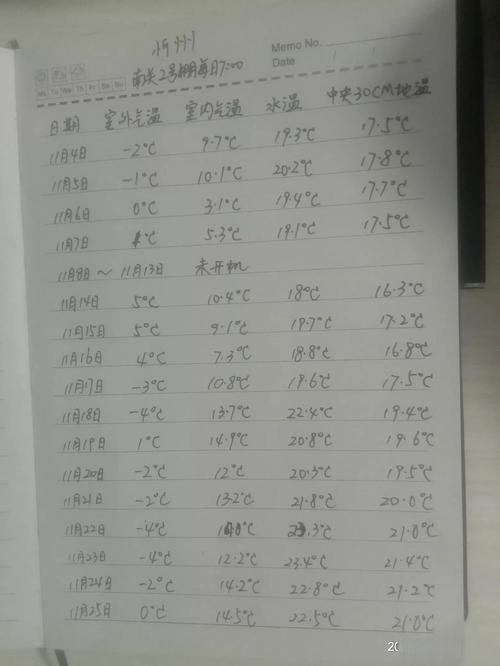 忻州
Memo No.
Date
南关2号棚每日7:00
Mo Tu We Th Fr Sa Su
日期 室外气温 室内气温 水温 中央30CM地温
11月4日 -2℃ 9.7℃ 19.3℃ 17.5℃
11月5日 -1℃ 10.1℃ 20.2℃ 17.8℃
11月6日 0℃ 3.1℃ 19.4℃ 17.7℃
11月7日 5.3℃ 19.1℃ 17.5℃
11月8日~11月13日 未开机
11月14日 5℃ 10.4℃ 18℃ 16.3℃
11月15日 5℃ 9.1℃ 19.7℃ 17.2℃
11月16日 4℃ 7.3℃ 18.8℃ 16.8℃
11月17日 -3℃ 10.8℃ 19.6℃ 17.5℃
11月18日 -4℃ 13.7℃ 22.4℃ 19.4℃
11月19日 1℃ 14.9℃ 20.8℃ 19.6℃
11月20日 -2℃ 12℃ 20.3℃ 19.5℃
11月21日 -2℃ 13.2℃ 21.8℃ 20.0℃
11月22日 -4℃ 21.0℃
11月23日 -4℃ 12.2℃ 23.4℃ 21.4℃
11月24日 -2℃ 14.2℃ 22.8℃ 21.2℃
11月25日 0℃ 14.5℃ 22.5℃ 21.0℃